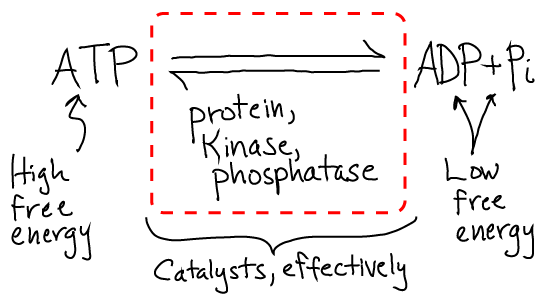 ATP
ADP+Pi
protein,
Kinase,
phosphatase
High
free
energy
Low
free
energy
Catalysts, effectively